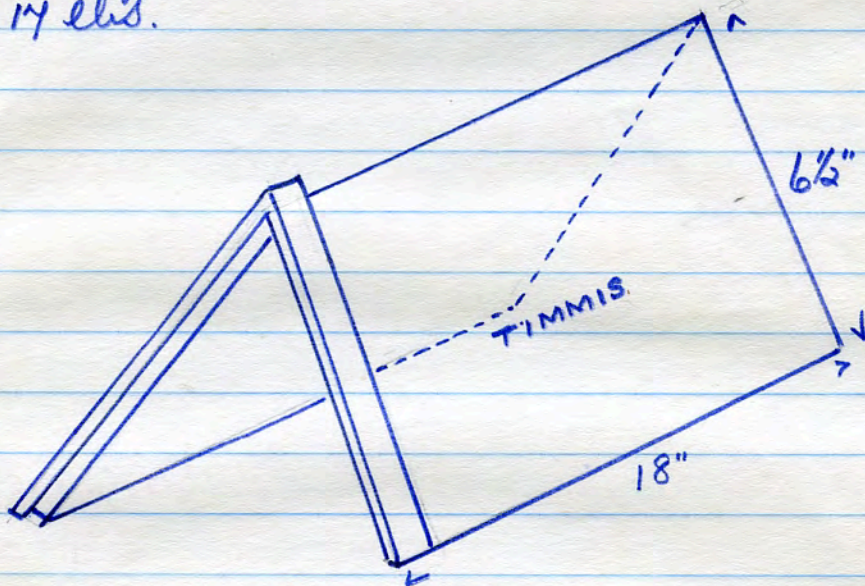 17
6½"
TIMMIS
18"